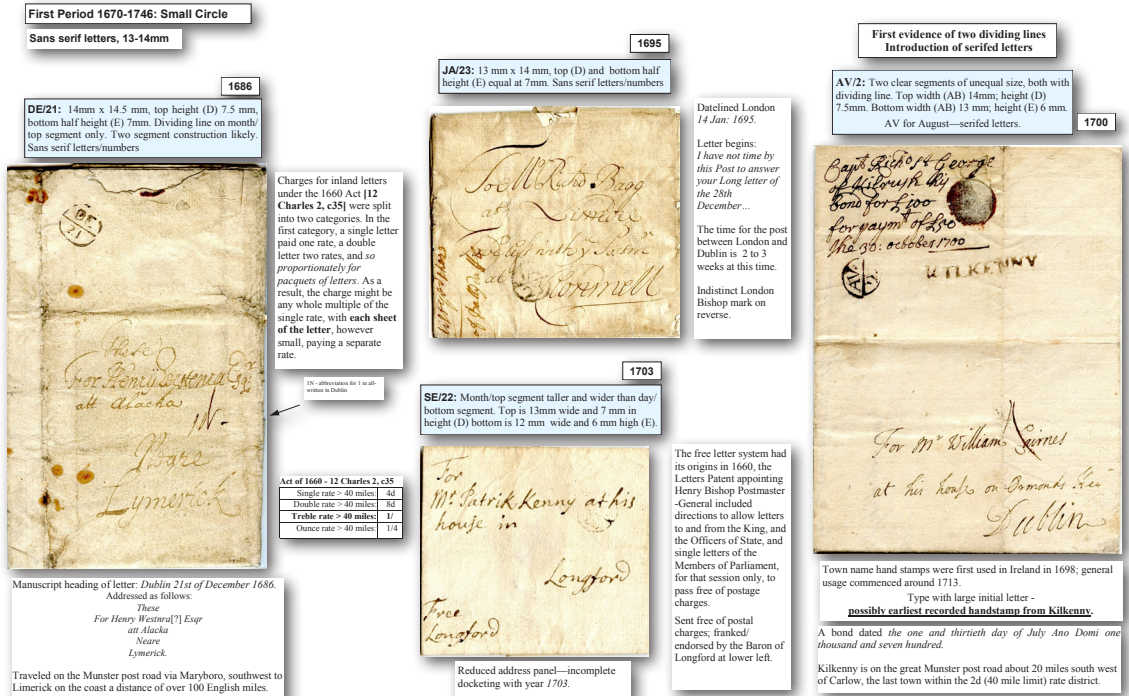 First Period 1670-1746: Small Circle
Sans serif letters, 13-14mm
1686
DE/21: 14mm x 14.5 mm, top height (D) 7.5 mm,
bottom half height (E) 7mm. Dividing line on month/
top segment only. Two segment construction likely.
Sans serif letters/numbers
DE
21
These
For Henry
att Alacka
1N-
Neare
Lymerick
Charges for inland letters
under the 1660 Act [12
Charles 2, c35] were split
into two categories. In the
first category, a single letter
paid one rate, a double
letter two rates, and so
proportionately for
pacquets of letters. As a
result, the charge might be
any whole multiple of the
single rate, with each sheet
of the letter, however
small, paying a separate
rate.
1N - abbreviation for 1 in all-
written in Dublin
Act of 1660 - 12 Charles 2, c35
Single rate > 40 miles: 4d
Double rate > 40 miles: 8d
Treble rate > 40 miles: 1/
Ounce rate > 40 miles: 1/4
Manuscript heading of letter: Dublin 21st of December 1686.
Addressed as follows:
These
For Henry Westnra[?] Esqr
att Alacka
Neare
Lymerick.
Traveled on the Munster post road via Maryboro, southwest to
Limerick on the coast a distance of over 100 English miles.
1695
JA/23: 13 mm x 14 mm, top (D) and bottom half
height (E) equal at 7mm. Sans serif letters/numbers
To Mr Richd. Bagg
at
Clonmell
Datelined London
14 Jan: 1695.
Letter begins:
I have not time by
this Post to answer
your Long letter of
the 28th
December…
The time for the post
between London and
Dublin is 2 to 3
weeks at this time.
Indistinct London
Bishop mark on
reverse.
1703
SE/22: Month/top segment taller and wider than day/
bottom segment. Top is 13mm wide and 7 mm in
height (D) bottom is 12 mm wide and 6 mm high (E).
For
Mr. Patrik Kenny at his
house in
Longford
Free
Longford
Reduced address panel—incomplete
docketing with year 1703.
The free letter system had
its origins in 1660, the
Letters Patent appointing
Henry Bishop Postmaster
-General included
directions to allow letters
to and from the King, and
the Officers of State, and
single letters of the
Members of Parliament,
for that session only, to
pass free of postage
charges.
Sent free of postal
charges; franked/
endorsed by the Baron of
Longford at lower left.
First evidence of two dividing lines
Introduction of serifed letters
AV/2: Two clear segments of unequal size, both with
dividing line. Top width (AB) 14mm; height (D)
7.5mm. Bottom width (AB) 13 mm; height (E) 6 mm.
AV for August—serifed letters.
1700
Capt Richo St George
of Kilrush his
bond for £100
for paymt of £50
the 30: october 1700
AV
2
KILKENNY
For Mr William Cairnes
at his house on Ormonds Kea
Dublin
Town name hand stamps were first used in Ireland in 1698; general
usage commenced around 1713.
Type with large initial letter -
possibly earliest recorded handstamp from Kilkenny.
A bond dated the one and thirtieth day of July Ano Domi one
thousand and seven hundred.
Kilkenny is on the great Munster post road about 20 miles south west
of Carlow, the last town within the 2d (40 mile limit) rate district.